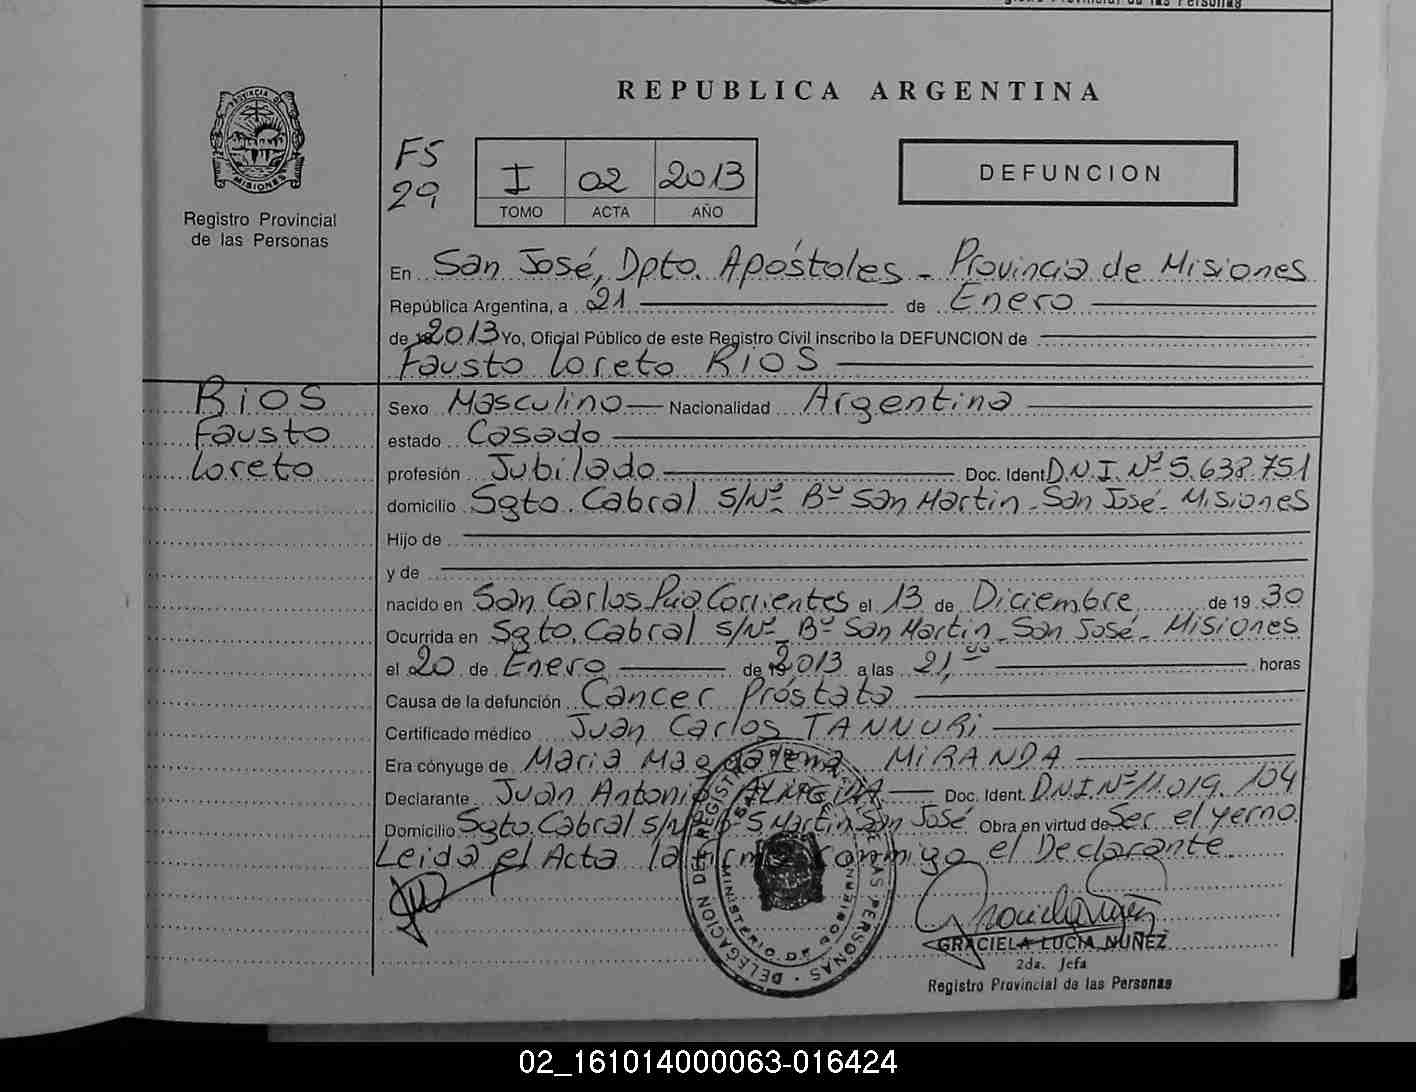 REPUBLICA ARGENTINA
PROVINCIA DE
MISIONES
Registro Provincial
de las Personas
FS
29
I 02 2013
TOMO ACTA AÑO
DEFUNCION
En San José, Dpto. Apóstoles - Provincia de Misiones
República Argentina, a 21 de Enero
de 2013 Yo, Oficial Público de este Registro Civil inscribo la DEFUNCION de
Fausto Loreto RIOS
RIOS
Fausto
Loreto
Sexo Masculino Nacionalidad Argentina
estado Casado
profesión Jubilado Doc. Ident D.N.I. Nº 5.638.751
domicilio Sgto. Cabral S/Nº Bº San Martin - San José - Misiones
Hijo de
y de
nacido en San Carlos Pcia Corrientes el 13 de Diciembre de 19 30
Ocurrida en Sgto. Cabral S/Nº Bº San Martin - San José - Misiones
el 20 de Enero de 2013 a las 21,00 horas
Causa de la defunción Cancer Próstata
Certificado médico Juan Carlos TANNURI
Era cónyuge de Maria Magdalena MIRANDA
Declarante Juan Antonio Doc. Ident. D.N.I Nº 11.019.104
Domicilio Sgto. Cabral S/Nº Bº S. Martin San José Obra en virtud de Ser el yerno
Leida el Acta la firma conmigo el Declarante
DELEGACION DEL REGISTRO DE LAS PERSONAS
MINISTERIO DE GOBIERNO
GRACIELA LUCIA NUÑEZ
2da. Jefa
Registro Provincial de las Personas
02_161014000063-016424